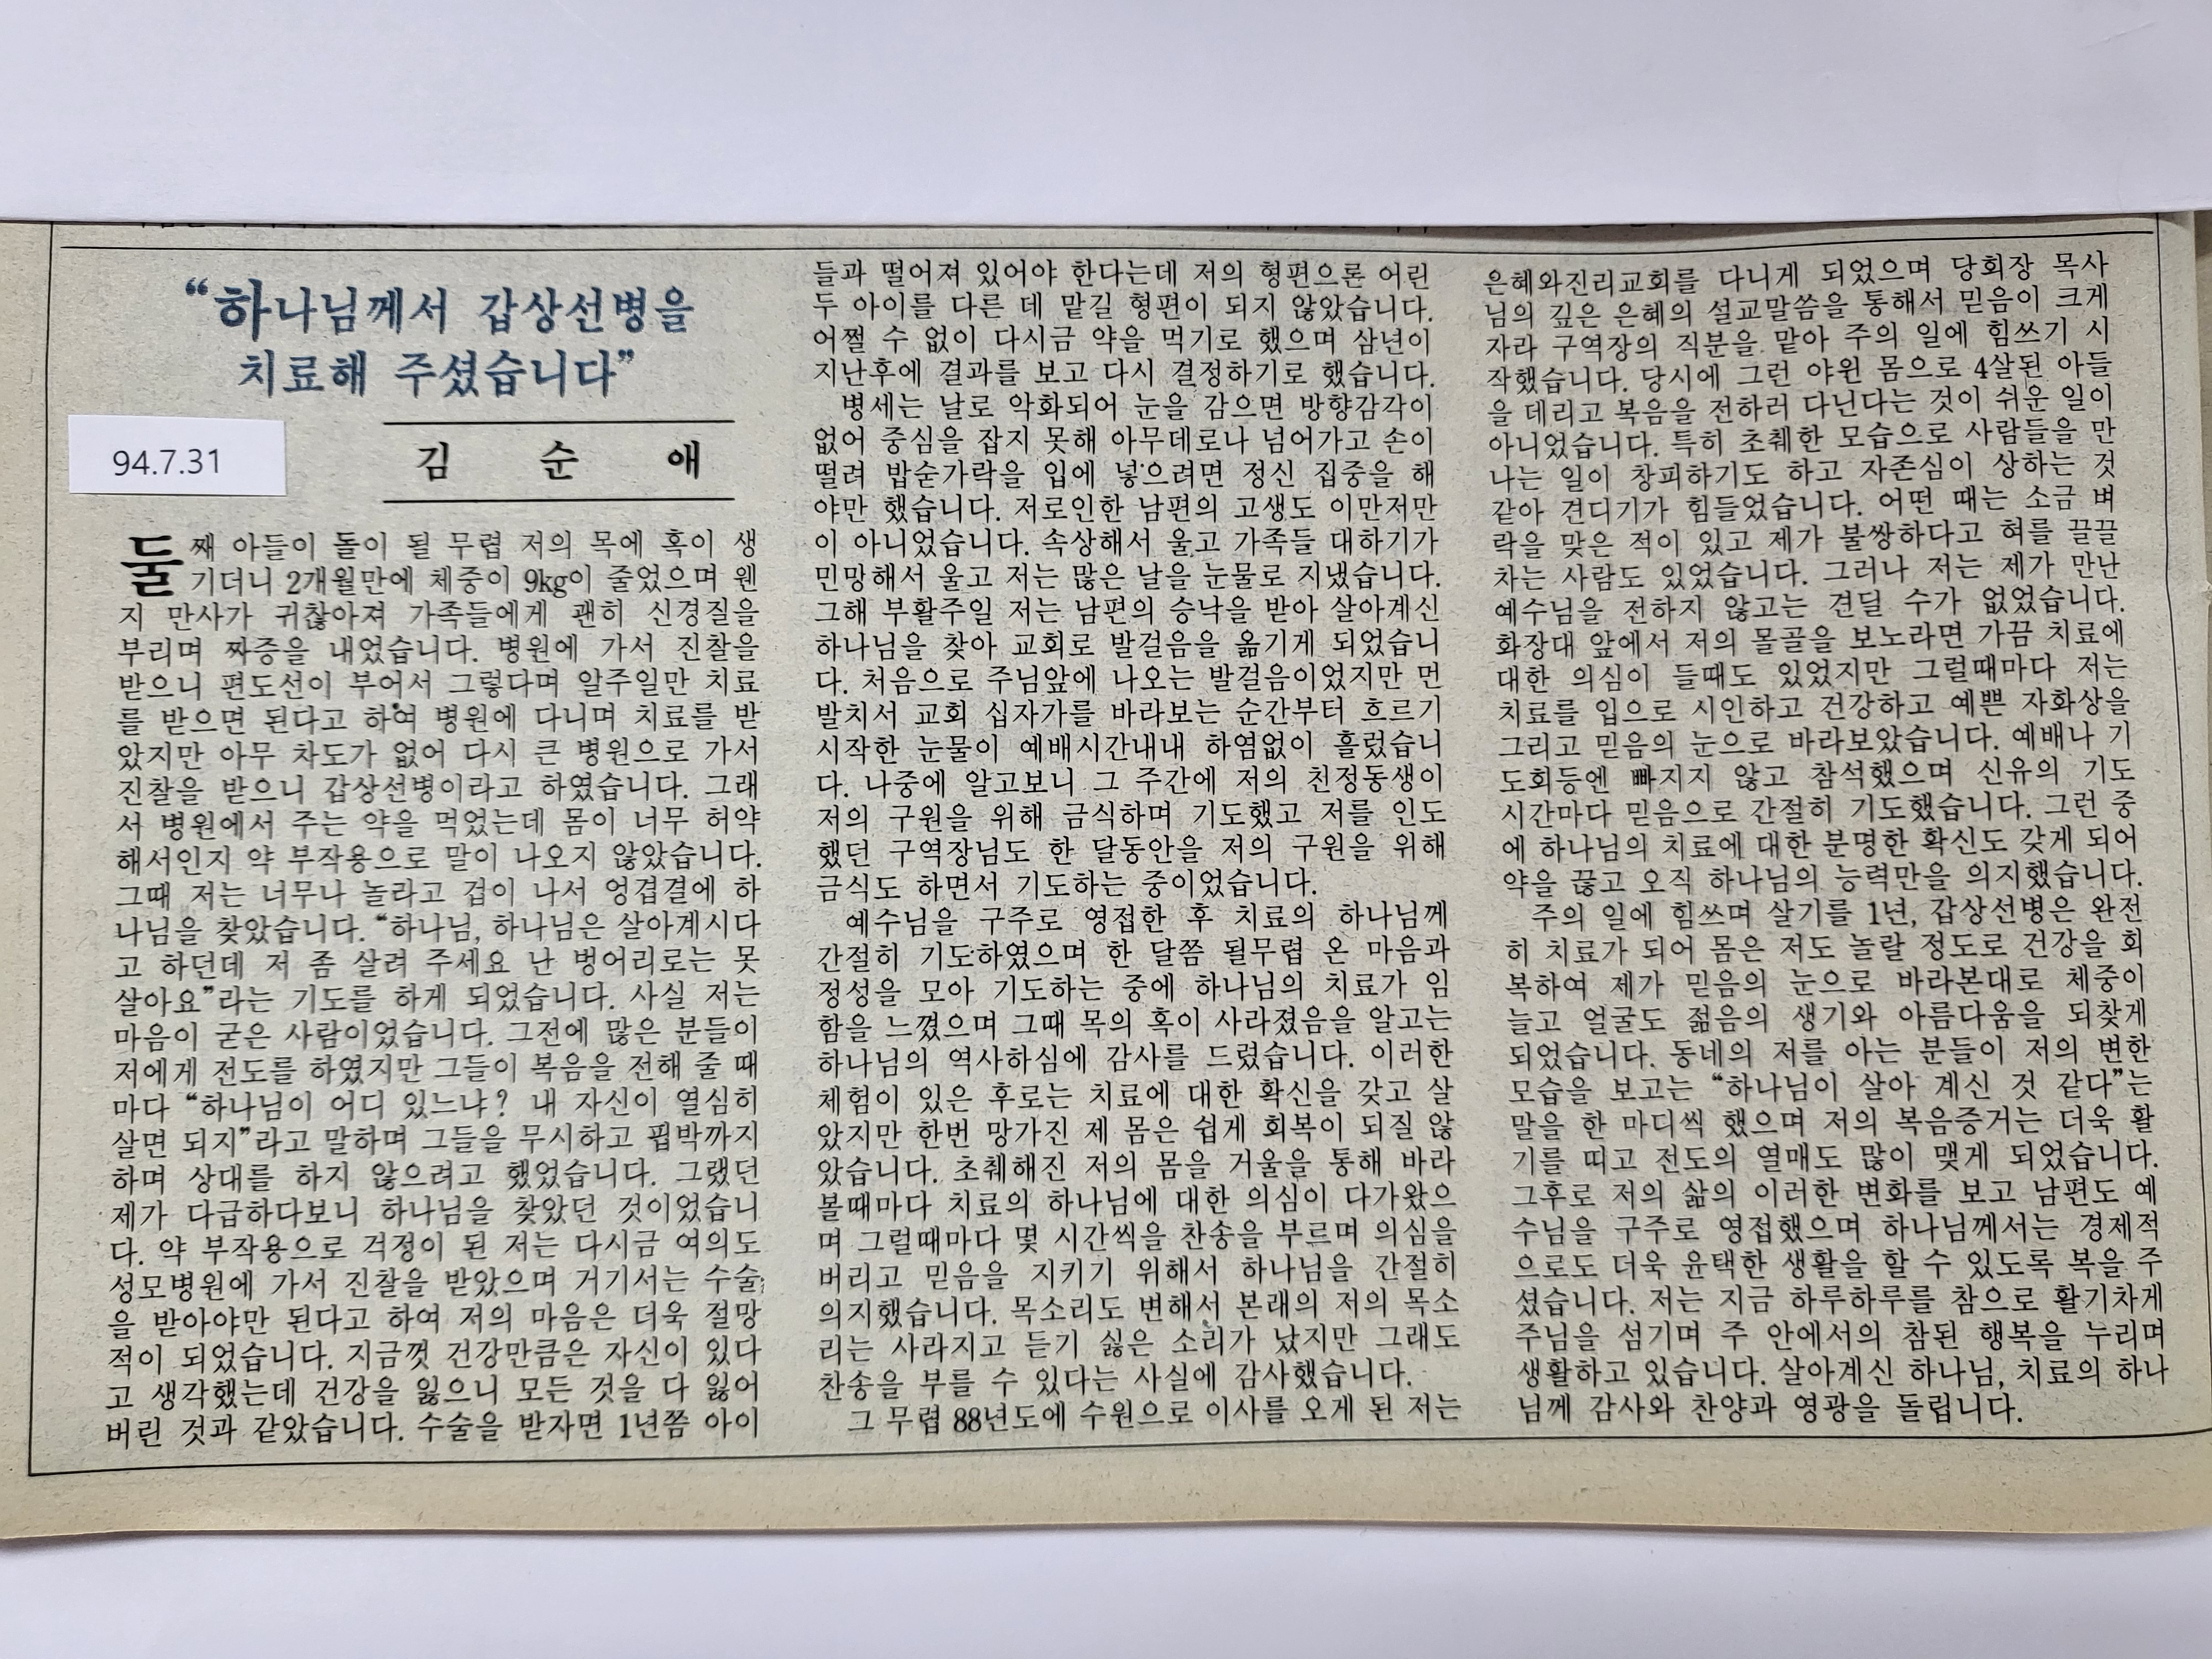 “하나님께서 갑상선병을
치료해 주셨습니다”
94.7.31
김 순 애
둘째 아들이 돌이 될 무렵 저의 목에 혹이 생
기더니 2개월만에 체중이 9kg이 줄었으며 웬
지 만사가 귀찮아져 가족들에게 괜히 신경질을
부리며 짜증을 내었습니다. 병원에 가서 진찰을
받으니 편도선이 부어서 그렇다며 알주일만 치료
를 받으면 된다고 하여 병원에 다니며 치료를 받
았지만 아무 차도가 없어 다시 큰 병원으로 가서
진찰을 받으니 갑상선병이라고 하였습니다. 그래
서 병원에서 주는 약을 먹었는데 몸이 너무 허약
해서인지 약 부작용으로 말이 나오지 않았습니다.
그때 저는 너무나 놀라고 겁이 나서 엉겁결에 하
나님을 찾았습니다. “하나님, 하나님은 살아계시다
고 하던데 저 좀 살려 주세요 난 벙어리로는 못
살아요”라는 기도를 하게 되었습니다. 사실 저는
마음이 굳은 사람이었습니다. 그전에 많은 분들이
저에게 전도를 하였지만 그들이 복음을 전해 줄 때
마다 “하나님이 어디 있느냐? 내 자신이 열심히
살면 되지”라고 말하며 그들을 무시하고 핍박까지
하며 상대를 하지 않으려고 했었습니다. 그랬던
제가 다급하다보니 하나님을 찾았던 것이었습니
다. 약 부작용으로 걱정이 된 저는 다시금 여의도
성모병원에 가서 진찰을 받았으며 거기서는 수술
을 받아야만 된다고 하여 저의 마음은 더욱 절망
적이 되었습니다. 지금껏 건강만큼은 자신이 있다
고 생각했는데 건강을 잃으니 모든 것을 다 잃어
버린 것과 같았습니다. 수술을 받자면 1년쯤 아이
들과 떨어져 있어야 한다는데 저의 형편으론 어린
두 아이를 다른 데 맡길 형편이 되지 않았습니다.
어쩔 수 없이 다시금 약을 먹기로 했으며 삼년이
지난후에 결과를 보고 다시 결정하기로 했습니다.
병세는 날로 악화되어 눈을 감으면 방향감각이
없어 중심을 잡지 못해 아무데로나 넘어가고 손이
떨려 밥숟가락을 입에 넣으려면 정신 집중을 해
야만 했습니다. 저로인한 남편의 고생도 이만저만
이 아니었습니다. 속상해서 울고 가족들 대하기가
민망해서 울고 저는 많은 날을 눈물로 지냈습니다.
그해 부활주일 저는 남편의 승낙을 받아 살아계신
하나님을 찾아 교회로 발걸음을 옮기게 되었습니
다. 처음으로 주님앞에 나오는 발걸음이었지만 먼
발치서 교회 십자가를 바라보는 순간부터 흐르기
시작한 눈물이 예배시간내내 하염없이 흘렀습니
다. 나중에 알고보니 그 주간에 저의 친정동생이
저의 구원을 위해 금식하며 기도했고 저를 인도
했던 구역장님도 한 달동안을 저의 구원을 위해
금식도 하면서 기도하는 중이었습니다.
예수님을 구주로 영접한 후 치료의 하나님께
간절히 기도하였으며 한 달쯤 될무렵 온 마음과
정성을 모아 기도하는 중에 하나님의 치료가 임
함을 느꼈으며 그때 목의 혹이 사라졌음을 알고는
하나님의 역사하심에 감사를 드렸습니다. 이러한
체험이 있은 후로는 치료에 대한 확신을 갖고 살
았지만 한번 망가진 제 몸은 쉽게 회복이 되질 않
았습니다. 초췌해진 저의 몸을 거울을 통해 바라
볼때마다 치료의 하나님에 대한 의심이 다가왔으
며 그럴때마다 몇 시간씩을 찬송을 부르며 의심을
버리고 믿음을 지키기 위해서 하나님을 간절히
의지했습니다. 목소리도 변해서 본래의 저의 목소
리는 사라지고 듣기 싫은 소리가 났지만 그래도
찬송을 부를 수 있다는 사실에 감사했습니다.
그 무렵 88년도에 수원으로 이사를 오게 된 저는
은혜와진리교회를 다니게 되었으며 당회장 목사
님의 깊은 은혜의 설교말씀을 통해서 믿음이 크게
자라 구역장의 직분을 맡아 주의 일에 힘쓰기 시
작했습니다. 당시에 그런 야윈 몸으로 4살된 아들
을 데리고 복음을 전하러 다닌다는 것이 쉬운 일이
아니었습니다. 특히 초췌한 모습으로 사람들을 만
나는 일이 창피하기도 하고 자존심이 상하는 것
같아 견디기가 힘들었습니다. 어떤 때는 소금 벼
락을 맞은 적이 있고 제가 불쌍하다고 혀를 끌끌
차는 사람도 있었습니다. 그러나 저는 제가 만난
예수님을 전하지 않고는 견딜 수가 없었습니다.
화장대 앞에서 저의 몰골을 보노라면 가끔 치료에
대한 의심이 들때도 있었지만 그럴때마다 저는
치료를 입으로 시인하고 건강하고 예쁜 자화상을
그리고 믿음의 눈으로 바라보았습니다. 예배나 기
도회등엔 빠지지 않고 참석했으며 신유의 기도
시간마다 믿음으로 간절히 기도했습니다. 그런 중
에 하나님의 치료에 대한 분명한 확신도 갖게 되어
약을 끊고 오직 하나님의 능력만을 의지했습니다.
주의 일에 힘쓰며 살기를 1년, 갑상선병은 완전
히 치료가 되어 몸은 저도 놀랄 정도로 건강을 회
복하여 제가 믿음의 눈으로 바라본대로 체중이
늘고 얼굴도 젊음의 생기와 아름다움을 되찾게
되었습니다. 동네의 저를 아는 분들이 저의 변한
모습을 보고는 “하나님이 살아 계신 것 같다”는
말을 한 마디씩 했으며 저의 복음증거는 더욱 활
기를 띠고 전도의 열매도 많이 맺게 되었습니다.
그후로 저의 삶의 이러한 변화를 보고 남편도 예
수님을 구주로 영접했으며 하나님께서는 경제적
으로도 더욱 윤택한 생활을 할 수 있도록 복을 주
셨습니다. 저는 지금 하루하루를 참으로 활기차게
주님을 섬기며 주 안에서의 참된 행복을 누리며
생활하고 있습니다. 살아계신 하나님, 치료의 하나
님께 감사와 찬양과 영광을 돌립니다.